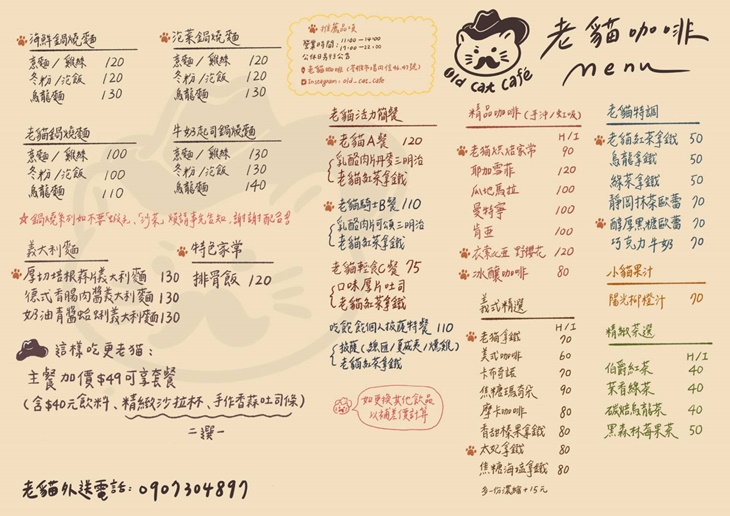 老貓咖啡
Menu
Old Cat Café
推薦品項
營業時間：11:00-14:00
17:00-22:00
公休日另行公告
Instagram：old_cat_cafe
海鮮鍋燒麵
意麵/雞絲 120
冬粉/泡飯 120
烏龍麵 130
泡菜鍋燒麵
意麵/雞絲 120
冬粉/泡飯 120
烏龍麵 130
老貓鍋燒麵
意麵/雞絲 100
冬粉/泡飯 100
烏龍麵 110
牛奶起司鍋燒麵
意麵/雞絲 130
冬粉/泡飯 130
烏龍麵 140
義大利麵
厚切培根蒜片義大利麵 130
德式香腸肉醬義大利麵 130
奶油青醬蛤蜊義大利麵 130
特色家常
排骨飯 120
這樣吃更老貓：
主餐加價$49可享套餐
(含$40元飲料、精緻沙拉杯、手作香蒜吐司條)
二選一
老貓外送電話：0907304897
老貓活力簡餐
老貓A餐 120
乳酪肉片丹麥三明治
老貓紅茶拿鐵
老貓騎士B餐 110
乳酪肉片可頌三明治
老貓紅茶拿鐵
老貓輕食C餐 75
口味厚片吐司
老貓紅茶拿鐵
個人披薩特餐 110
老貓紅茶拿鐵
如更換其他飲品
以補差價計算
精品咖啡(手沖/虹吸)
H/I
老貓烘焙家常 90
耶加雪菲 120
瓜地馬拉 100
曼特寧 100
肯亞 100
衣索比亞 野櫻花 120
冰釀咖啡 80
義式精選
H/I
老貓拿鐵 70
美式咖啡 60
卡布奇諾 70
焦糖瑪奇朵 90
摩卡咖啡 80
青甜榛果拿鐵 80
太妃拿鐵 80
焦糖海鹽拿鐵 80
多一份濃縮+15元
老貓特調
老貓紅茶拿鐵 50
烏龍拿鐵 50
綠茶拿鐵 50
靜岡抹茶歐蕾 70
醇厚黑糖歐蕾 70
巧克力牛奶 70
小貓果汁
陽光柳橙汁 70
精緻茶選
H/I
伯爵紅茶 40
茉香綠茶 40
碳焙烏龍茶 40
黑森林莓果茶 50